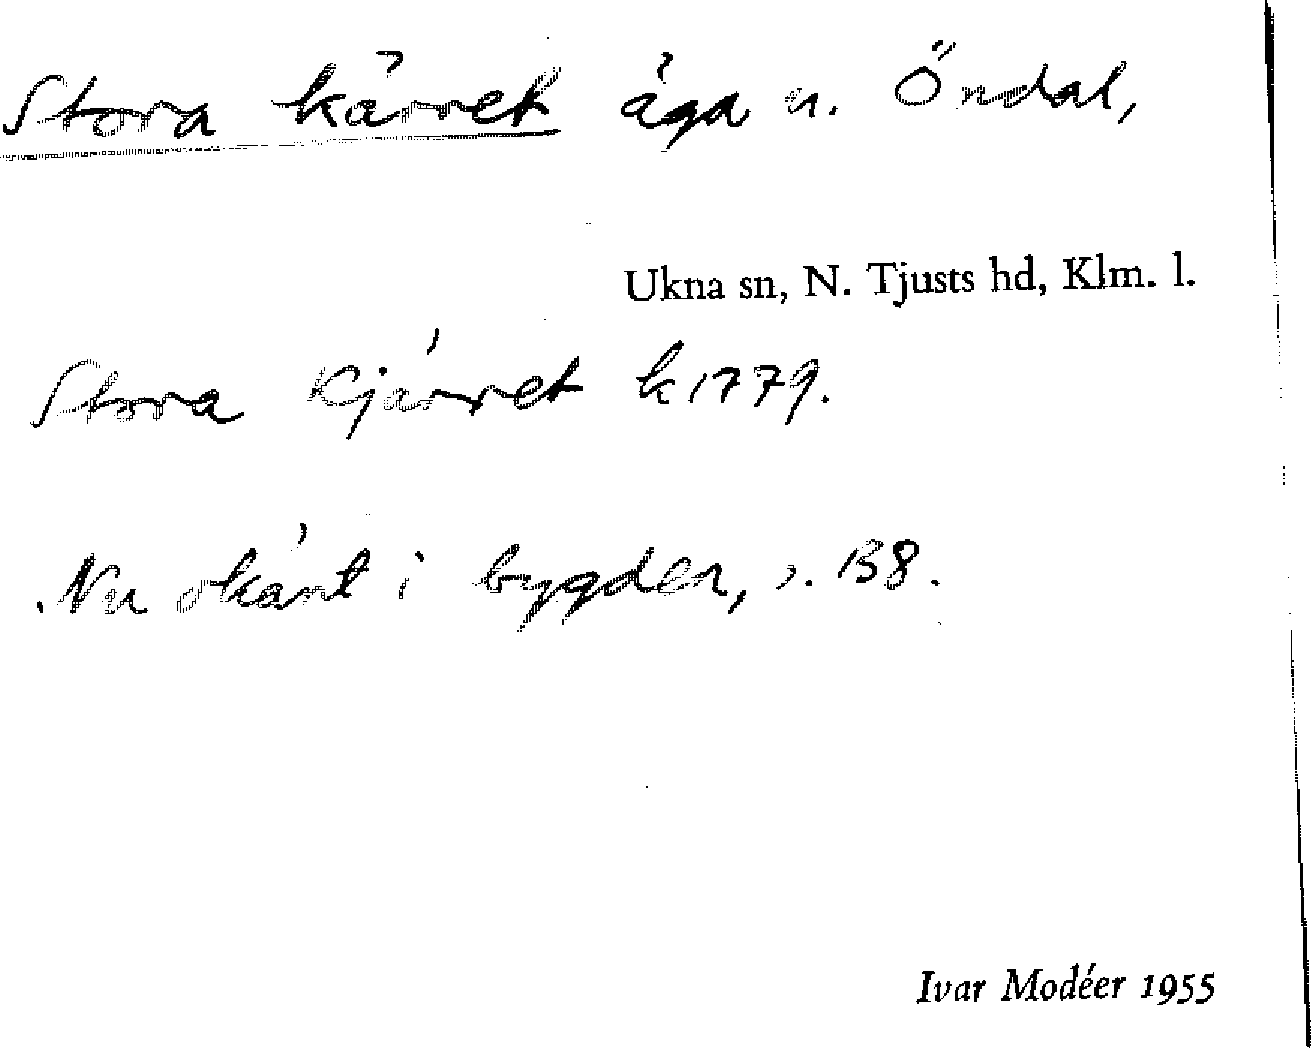 Stora kärret äga u. Öndal,
Ukna sn, N. Tjusts hd, Klm. l.
Stora Kjärret k 1779.
Nu okänt i bygden, s. 138.
Ivar Modéer 1955